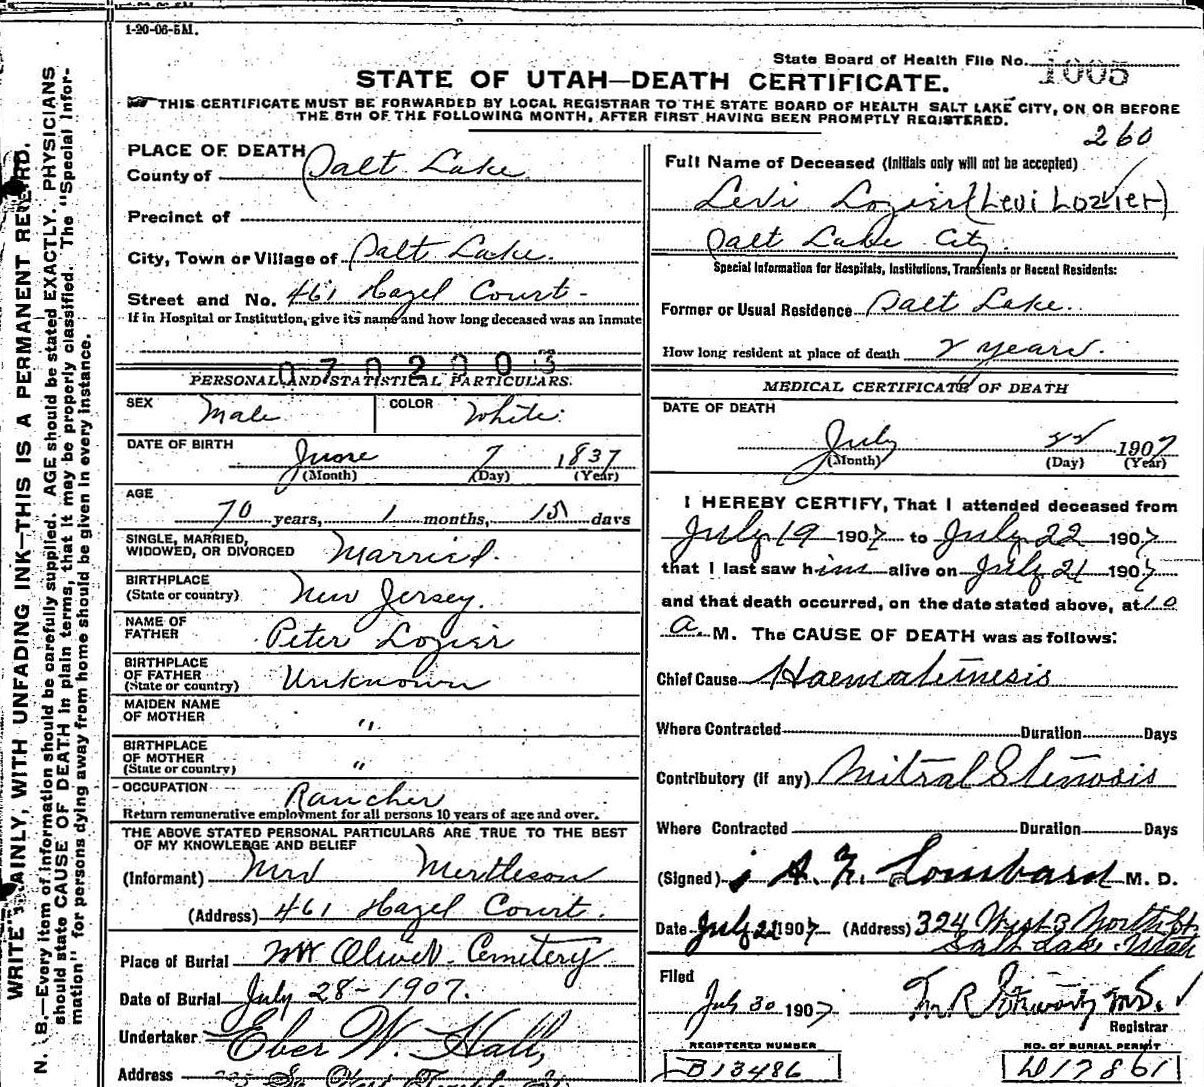 1-20-06-5M.
State Board of Health File No. 1005
STATE OF UTAH—DEATH CERTIFICATE.
THIS CERTIFICATE MUST BE FORWARDED BY LOCAL REGISTRAR TO THE STATE BOARD OF HEALTH SALT LAKE CITY, ON OR BEFORE
THE 5TH OF THE FOLLOWING MONTH, AFTER FIRST HAVING BEEN PROMPTLY REGISTERED.
260
PLACE OF DEATH
County of Salt Lake
Precinct of
City, Town or Village of Salt Lake.
Street and No. 461 Hazel Court
If in Hospital or Institution, give its name and how long deceased was an inmate
0702003
PERSONAL AND STATISTICAL PARTICULARS.
SEX Male
COLOR White
DATE OF BIRTH June 7 1837
(Month) (Day) (Year)
AGE
70 years, 1 months, 15 days
SINGLE, MARRIED,
WIDOWED, OR DIVORCED Married.
BIRTHPLACE
(State or country) New Jersey.
NAME OF
FATHER Peter Lozier
BIRTHPLACE
OF FATHER
(State or country) Unknown
MAIDEN NAME
OF MOTHER "
BIRTHPLACE
OF MOTHER
(State or country) "
OCCUPATION Rancher
Return remunerative employment for all persons 10 years of age and over.
THE ABOVE STATED PERSONAL PARTICULARS ARE TRUE TO THE BEST
OF MY KNOWLEDGE AND BELIEF
(Informant) Mrs
(Address) 461 Hazel Court.
Place of Burial Mt Olivet Cemetery
Date of Burial July 28-1907.
Undertaker Eber W. Hall,
Address
Full Name of Deceased (Initials only will not be accepted)
Levi Lozier (Levi Lozier)
Salt Lake City.
Special Information for Hospitals, Institutions, Transients or Recent Residents:
Former or Usual Residence Salt Lake.
How long resident at place of death 2 years.
MEDICAL CERTIFICATE OF DEATH
DATE OF DEATH
July 22 1907
(Month) (Day) (Year)
I HEREBY CERTIFY, That I attended deceased from
July 19 1907 to July 22 1907
that I last saw him alive on July 21 1907
and that death occurred, on the date stated above, at 10
a. M. The CAUSE OF DEATH was as follows:
Chief Cause Haematemesis
Where Contracted Duration Days
Contributory (if any) Mitral Stenosis
Where Contracted Duration Days
(Signed) Lombard M. D.
Date July 22 1907 (Address) 324 West 3 North St.
Salt Lake Utah
Filed
July 30 1907
Registrar
REGISTERED NUMBER
B13486
NO. OF BURIAL PERMIT
D17861
WRITE PLAINLY, WITH UNFADING INK—THIS IS A PERMANENT RECORD.
N. B.—Every item of information should be carefully supplied. AGE should be stated EXACTLY. PHYSICIANS
should state CAUSE OF DEATH in plain terms, that it may be properly classified. The "Special Infor-
mation" for persons dying away from home should be given in every instance.